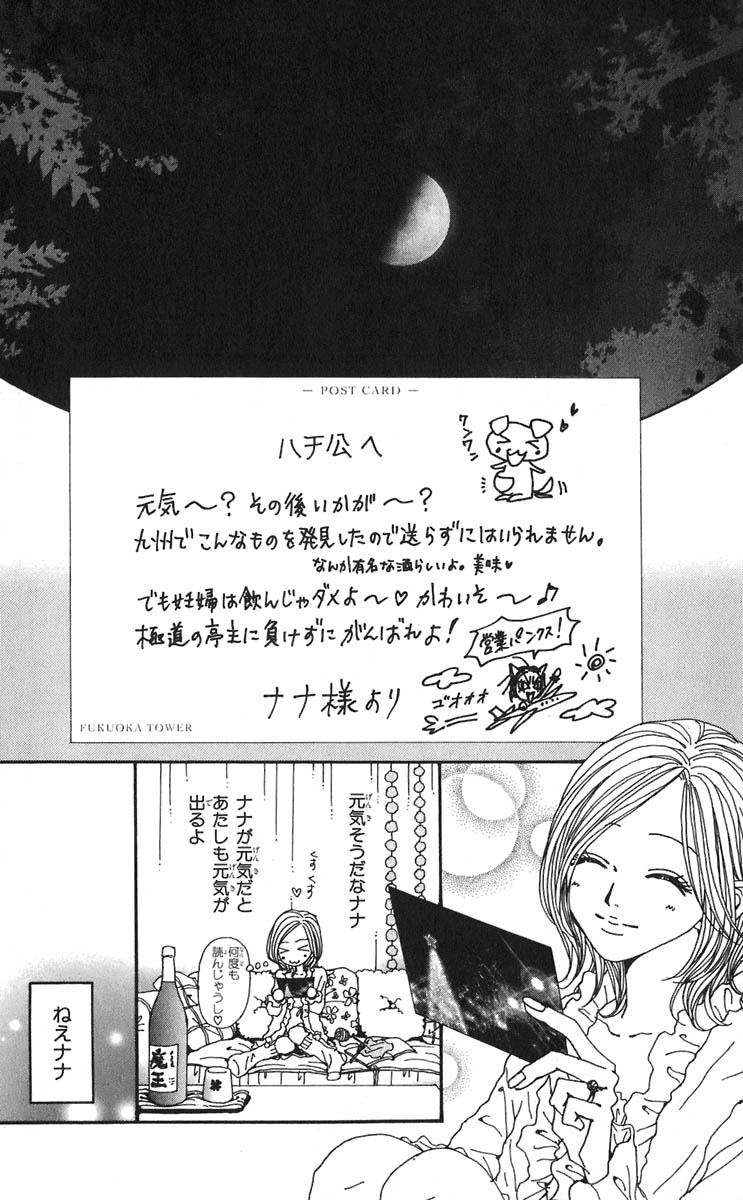 — POST CARD —
ハチ公へ
ワンワン
元気〜？その後いかが〜？
九州でこんなものを発見したので送らずにはいられません。
なんか有名な酒らしいよ。美味♥
でも妊婦は飲んじゃダメよ〜♡かわいそ〜♪
極道の亭主に負けずにがんばれよ！
営業パンクス！
ゴオオオ
ナナ様より
FUKUOKA TOWER
元気そうだなナナ
ナナが元気だと
あたしも元気が
出るよ
くすくす
何度も
読んじゃうし♡
魔王
ねえナナ